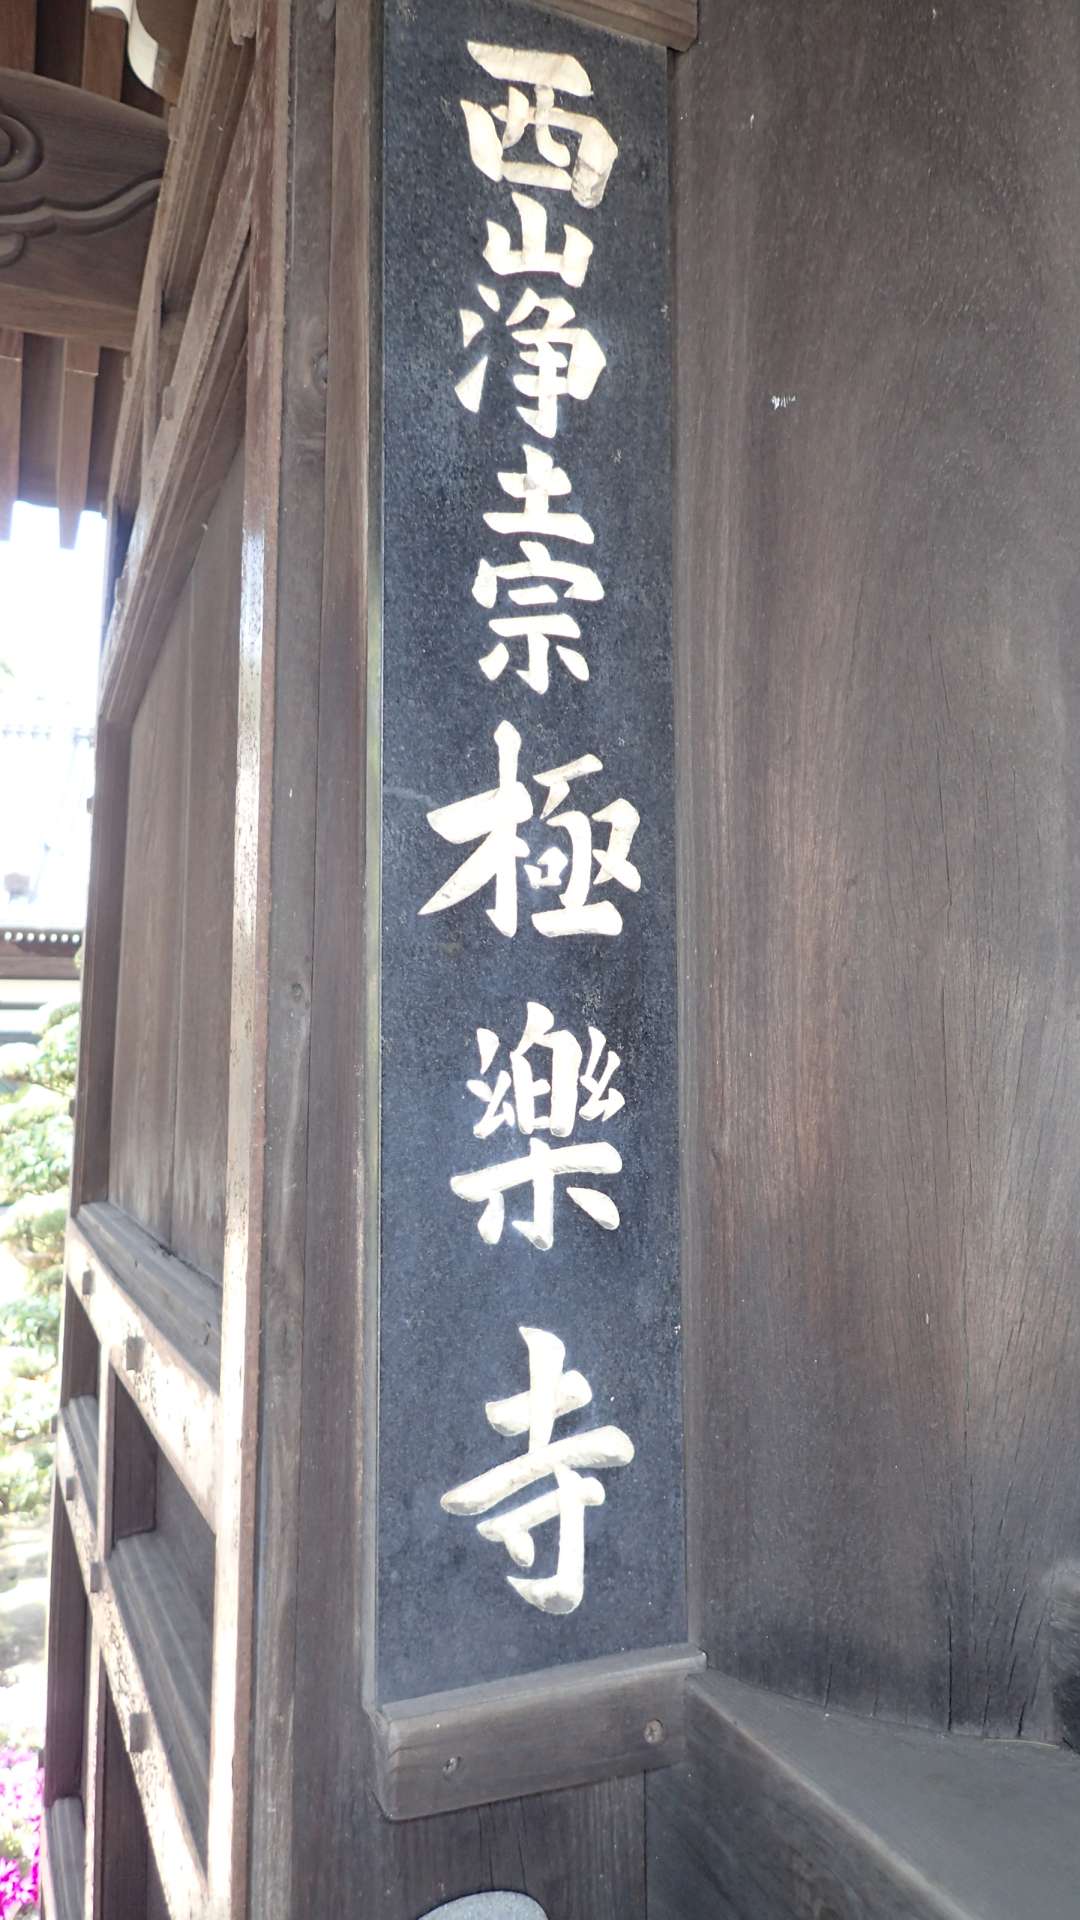 西山浄土宗極樂寺